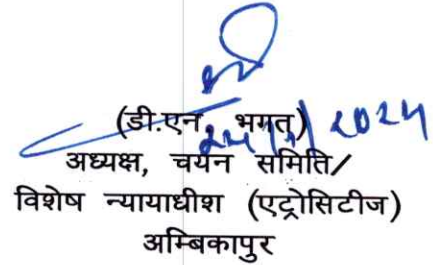 (डी.एन. भगत)
अध्यक्ष, चयन समिति/
विशेष न्यायाधीश (एट्रोसिटीज)
अम्बिकापुर